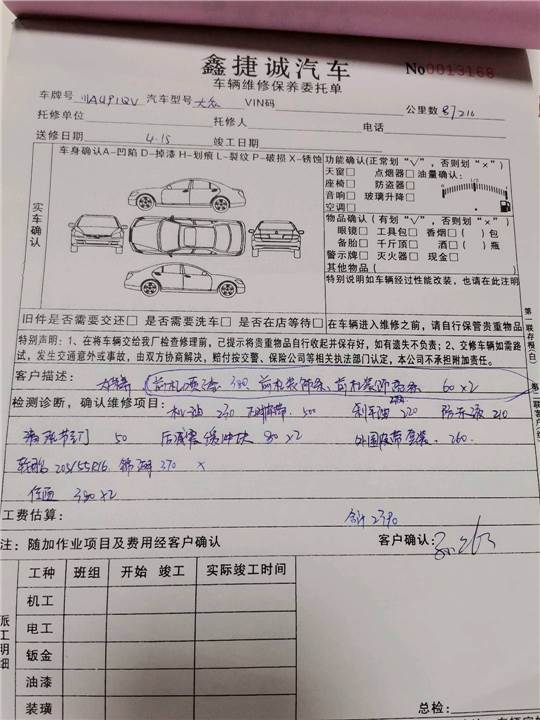 鑫捷诚汽车
No 0013168
车辆维修保养委托单
车牌号 川AU91QV 汽车型号 大众 VIN码 公里数 87216
托修单位 托修人 电话
送修日期 4-15 竣工日期
车身确认A-凹陷 D-掉漆 H-划痕 L-裂纹 P-破损 X-锈蚀
实车确认
功能确认(正常划"√",否则划"×")
天窗□ 点烟器□ 油量确认:
座椅□ 防盗器□
音响□ 玻璃升降□
空调□
物品确认(有划"√",否则划"×")
眼镜□ 工具包□ 香烟( )包
备胎□ 千斤顶□ 酒( )瓶
警示牌□ 灭火器□ 现金□
其他物品(
特别说明如车辆经过性能改装,也请在此注明
旧件是否需要交还□ 是否需要洗车□ 是否在店等待□ 在车辆进入维修之前,请自行保管贵重物品
特别声明:1、在将车辆交给我厂检查修理前,已提示将贵重物品自行收起并保存好,如有遗失不负责;2、交修车辆如需路
试,发生交通意外或事故,由双方协商解决,赔付按交警、保险公司等相关执法部门认定,本公司不承担附加责任。
客户描述: 前杠喷漆 380 60×2
检测诊断,确认维修项目: 机油 230 500 刹车油 220 防冻液 210
清洗节气门 50 后减震缓冲块 80×2 外围皮带套装 260
轮胎 205/55R16 锦湖 370 ×
380×2
工费估算: 合计2390
注:随加作业项目及费用经客户确认 客户确认:
派工明细
工种 班组 开始 竣工 实际竣工时间
机工
电工
钣金
油漆
装璜
总检:
第一联存根(白)